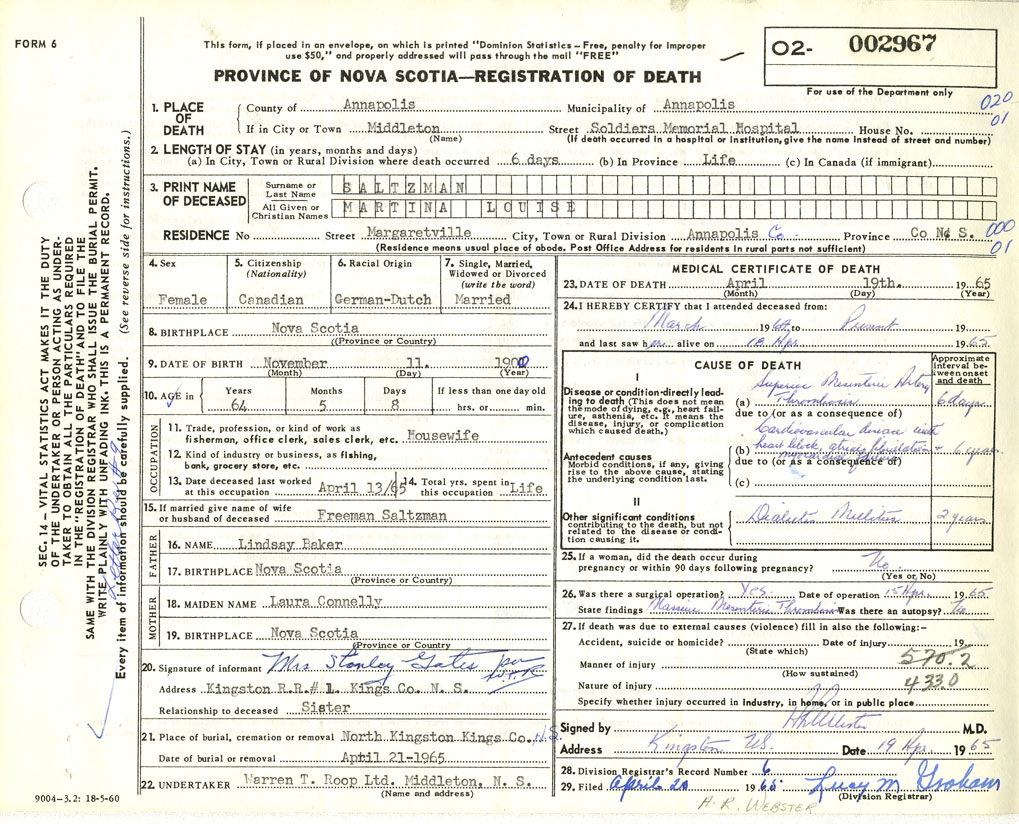 FORM 6
This form, if placed in an envelope, on which is printed "Dominion Statistics – Free, penalty for improper
use $50," and properly addressed will pass through the mail "FREE"
PROVINCE OF NOVA SCOTIA—REGISTRATION OF DEATH
02- 002967
For use of the Department only
020
01
1. PLACE OF DEATH
County of Annapolis Municipality of Annapolis
If in City or Town Middleton Street Soldiers Memorial Hospital House No.
(Name) (If death occurred in a hospital or institution, give the name instead of street and number)
2. LENGTH OF STAY (in years, months and days)
(a) In City, Town or Rural Division where death occurred 6 days (b) In Province Life (c) In Canada (if immigrant)
3. PRINT NAME OF DECEASED
Surname or Last Name SALTZMAN
All Given or Christian Names MARTINA LOUISE
RESIDENCE No Street Margaretville City, Town or Rural Division Annapolis Co. Province Co N. S. 000
01
(Residence means usual place of abode. Post Office Address for residents in rural parts not sufficient)
4. Sex
Female
5. Citizenship
(Nationality)
Canadian
6. Racial Origin
German-Dutch
7. Single, Married, Widowed or Divorced
(write the word)
Married
8. BIRTHPLACE Nova Scotia
(Province or Country)
9. DATE OF BIRTH November 11. 1900
(Month) (Day) (Year)
10. AGE in Years Months Days If less than one day old
64 5 8 hrs. or min.
OCCUPATION
11. Trade, profession, or kind of work as
fisherman, office clerk, sales clerk, etc. Housewife
12. Kind of industry or business, as fishing,
bank, grocery store, etc.
13. Date deceased last worked
at this occupation April 13/65
14. Total yrs. spent in
this occupation Life
15. If married give name of wife
or husband of deceased Freeman Saltzman
FATHER
16. NAME Lindsay Baker
17. BIRTHPLACE Nova Scotia
(Province or Country)
MOTHER
18. MAIDEN NAME Laura Connelly
19. BIRTHPLACE Nova Scotia
(Province or Country
20. Signature of informant Mrs Stanley Gates per
W.T.R.
Address Kingston R.R.# 1. Kings Co. N. S.
Relationship to deceased Sister
21. Place of burial, cremation or removal North Kingston Kings Co. N.S.
Date of burial or removal April 21-1965
22. UNDERTAKER Warren T. Roop Ltd. Middleton, N. S.
(Name and address)
MEDICAL CERTIFICATE OF DEATH
23. DATE OF DEATH April 19th. 1965
(Month) (Day) (Year)
24. I HEREBY CERTIFY that I attended deceased from:
March 1964 to Present 19
and last saw her alive on 18 Apr. 1965
CAUSE OF DEATH
Approximate interval between onset and death
I
Disease or condition directly leading to death (This does not mean
the mode of dying, e.g., heart failure, asthenia, etc. It means the
disease, injury, or complication
which caused death.)
(a) Superior Mesenteric Artery
Thrombosis 6 days
due to (or as a consequence of)
Antecedent causes
Morbid conditions, if any, giving
rise to the above cause, stating
the underlying condition last.
Cardiovascular disease with
(b) heart block, atrial fibrillation + 6 years
due to (or as a consequence of)
(c)
II
Other significant conditions
contributing to the death, but not
related to the disease or condition causing it.
Diabetes Mellitus 2 years
25. If a woman, did the death occur during
pregnancy or within 90 days following pregnancy? No.
(Yes or, No)
26. Was there a surgical operation? Yes. Date of operation 15 Apr. 1965
State findings Massive Mesenteric Thrombosis Was there an autopsy? No
27. If death was due to external causes (violence) fill in also the following:–
Accident, suicide or homicide? Date of injury 19
(State which)
Manner of injury 570.2
(How sustained)
Nature of injury 433.0
Specify whether injury occurred in industry, in home, or in public place
Signed by M.D.
Address Kingston NS. Date 19 Apr. 1965
28. Division Registrar's Record Number 6
29. Filed April 20 1965 Lucy M Graham
(Division Registrar)
H. R. WEBSTER
9004-3.2: 18-5-60
SEC. 14 – VITAL STATISTICS ACT MAKES IT THE DUTY
OF THE UNDERTAKER OR PERSON ACTING AS UNDER-
TAKER TO OBTAIN ALL THE PARTICULARS REQUIRED
IN THE "REGISTRATION OF DEATH" AND TO FILE THE
SAME WITH THE DIVISION REGISTRAR WHO SHALL ISSUE THE BURIAL PERMIT.
WRITE PLAINLY WITH UNFADING INK. THIS IS A PERMANENT RECORD.
Every item of information should be carefully supplied. (See reverse side for instructions.)